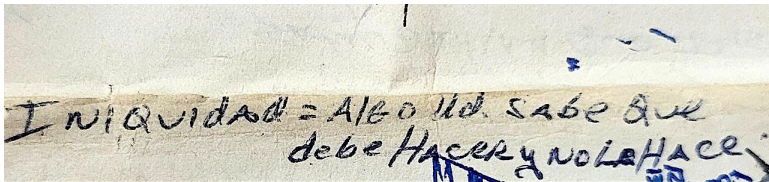 INIQUIDAD = AlGO Ud. SAbe Que
debe HACER y NO LO HACE.